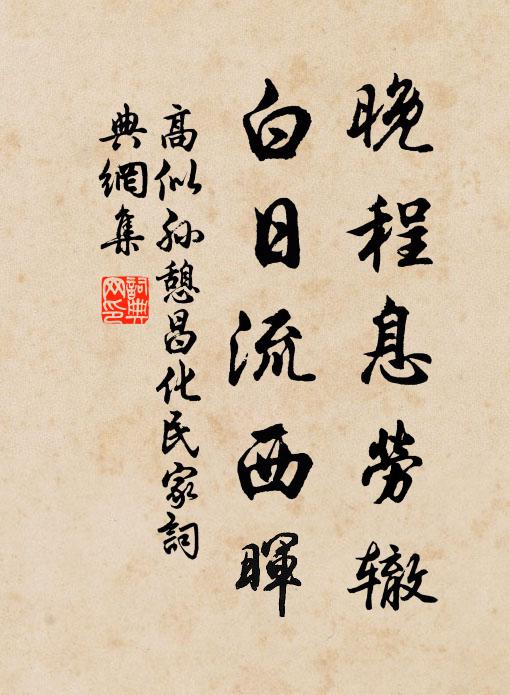 晚程息勞辙
白日流西暉
高似孙憩昌化民家詞
典網集
詞典
网印